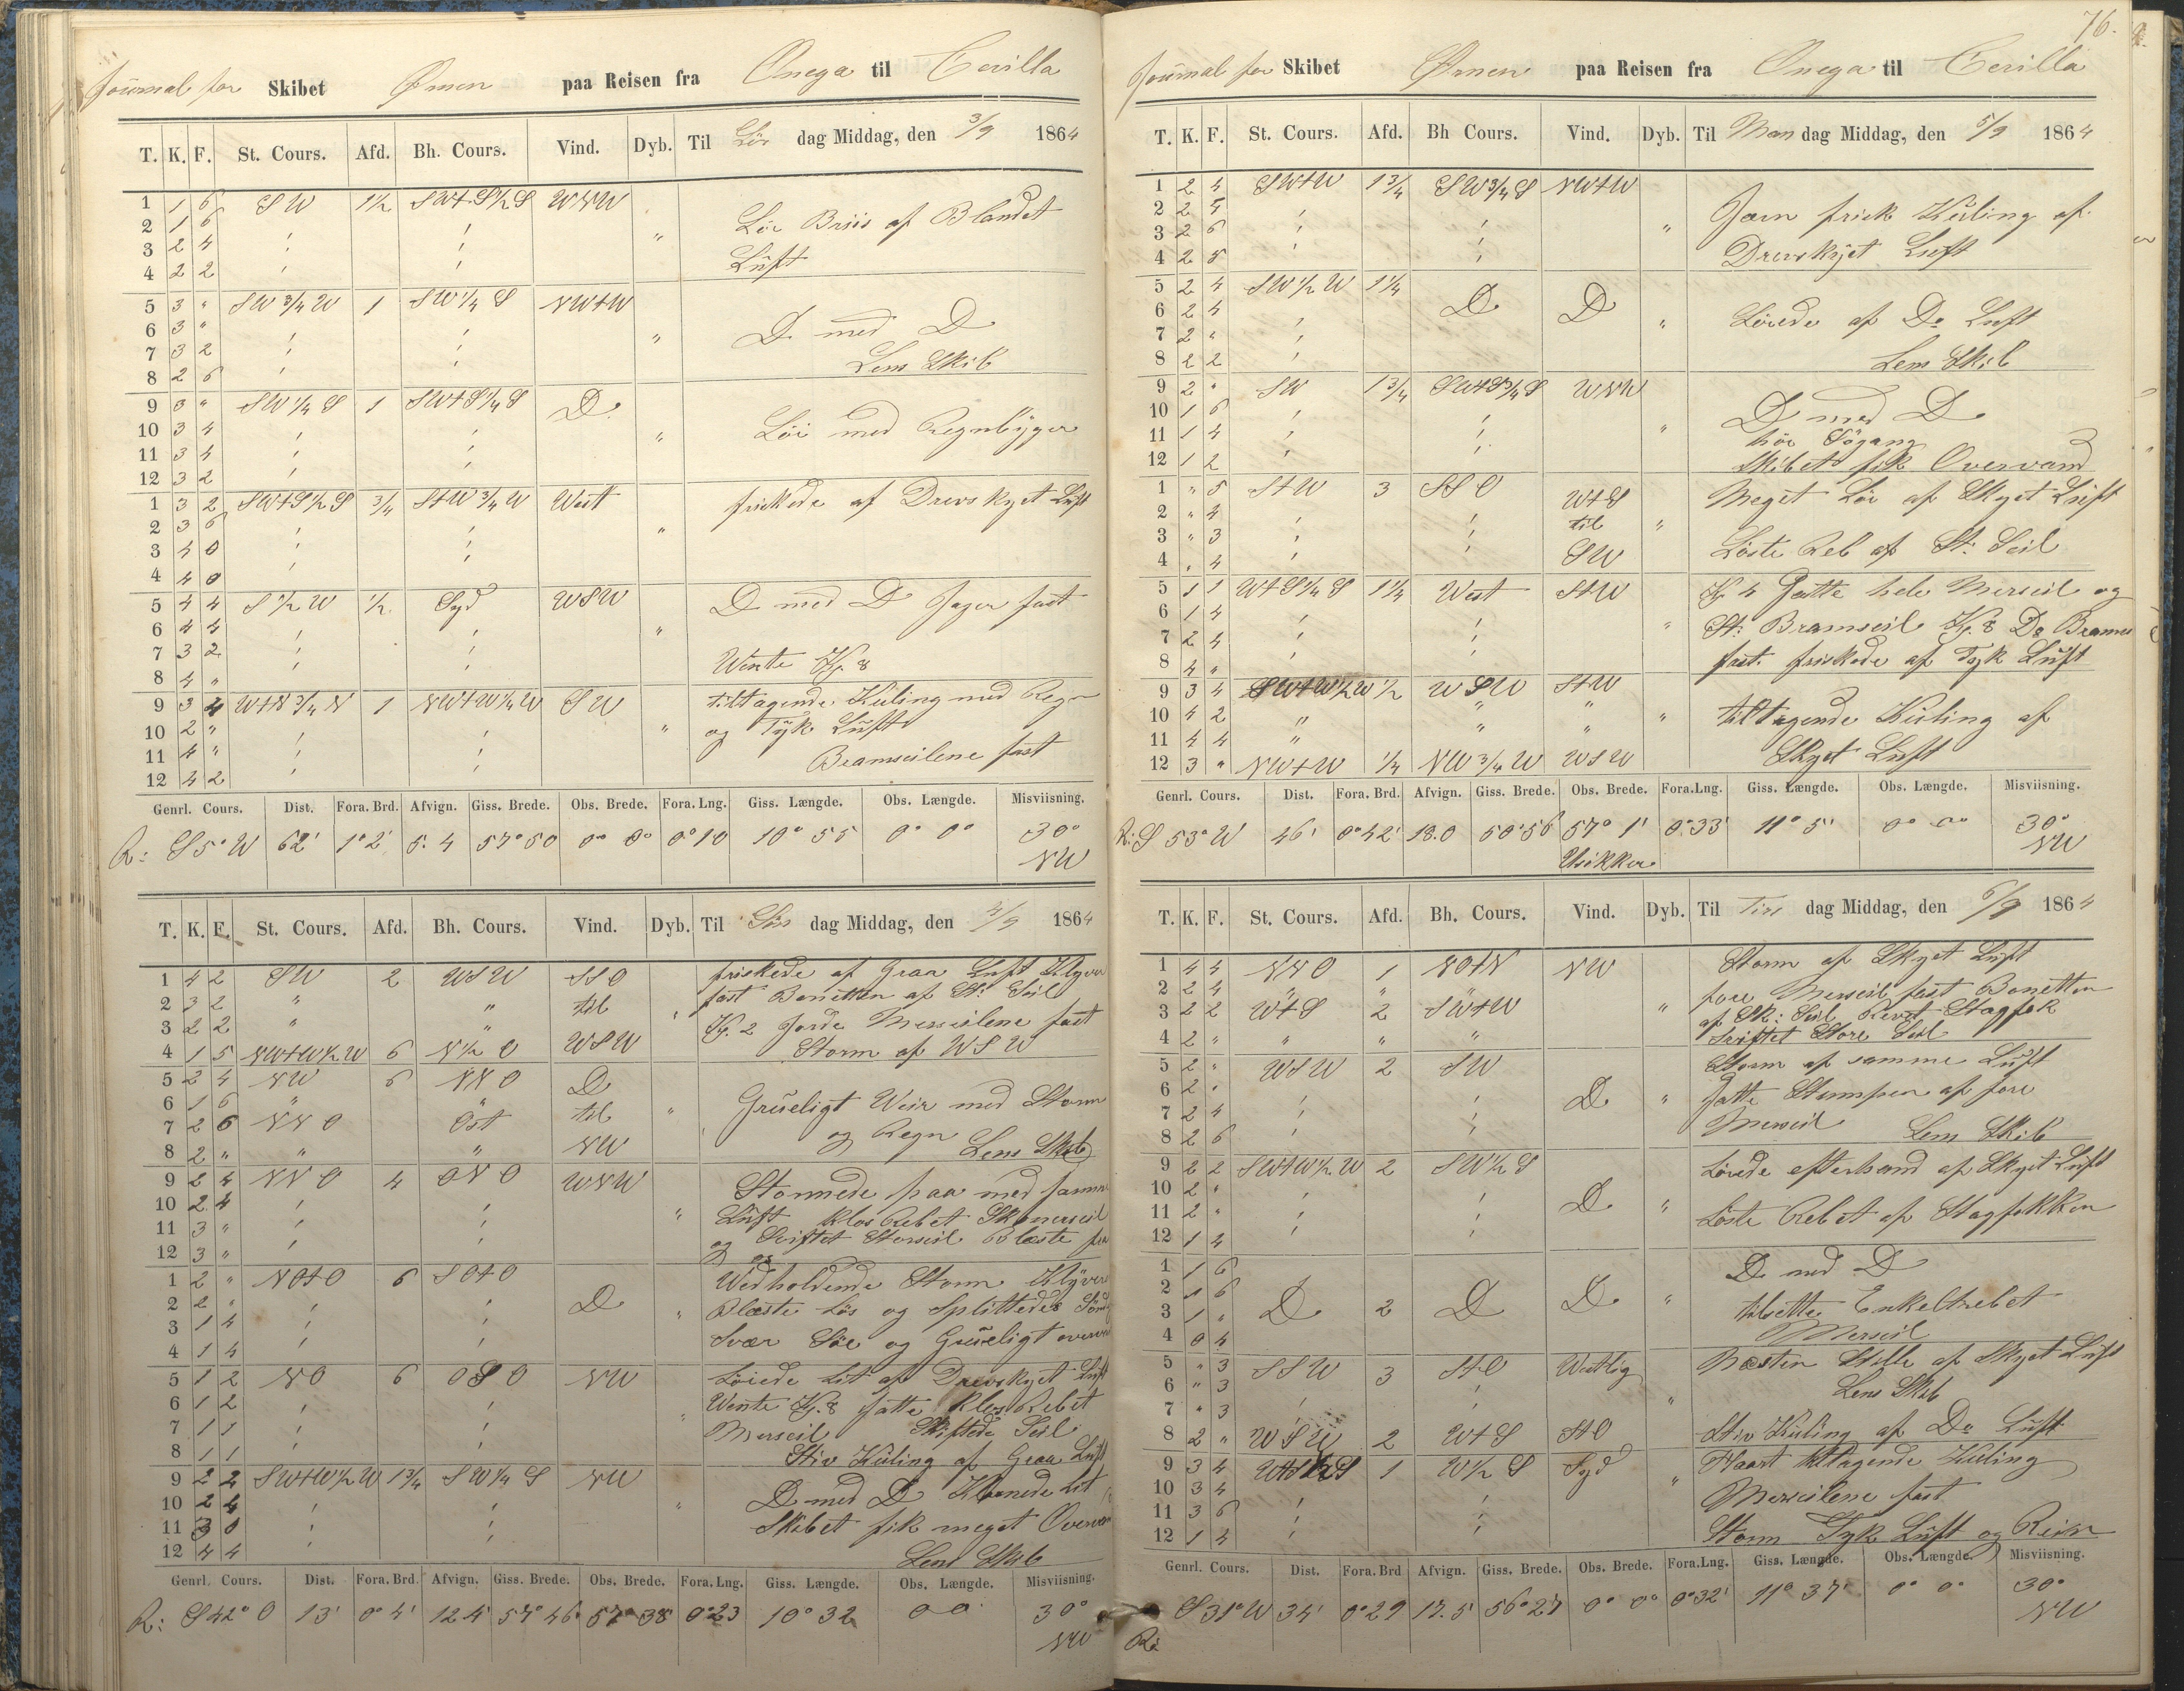 Journal for Skibet Ørnen paa Reisen fra Onega til Cevilla
T. K. F. St. Cours. Afd. Bh. Cours. Vind. Dyb. Til Lör dag Middag, den 3/9 1864
1 1 6 SW 1½ SW+S½S WNW
2 1 6 Löi Briis af Blandet
3 2 4 "
4 2 2 Luft
5 3 " SW¾W 1 SW¼S NW+W
6 3 " D med D
7 3 2 "
8 2 6 Lens Skib
9 3 " SW¼S 1 SW+S¼S D
10 3 4 Löi med Regnbyger
11 3 4 "
12 3 2
1 3 2 SW+S½S ¾ S+W¾W West friskede af Drevskyet Luft
2 3 6 "
3 4 0
4 4 0
5 4 4 S½W ½ Syd WSW D med D Jager fast
6 4 4 "
7 3 2 Wente Kl. 8
8 4 "
9 3 4 W+N¾N 1 NW+W¼W SW tiltagende Kuling med Regn
10 2 " " og Tyk Luft
11 4 " Bramseilene fast
12 4 2
Genrl. Cours. Dist. Fora. Brd. Afvign. Giss. Brede. Obs. Brede. Fora. Lng. Giss. Længde. Obs. Længde. Misviisning.
R: S 5° W 62' 1° 2' 5. 4 57° 50 0° 0° 0° 10 10° 55 0° 0° 30°
NW
T. K. F. St. Cours. Afd. Bh. Cours. Vind. Dyb. Til Sön dag Middag, den 4/9 1864
1 4 2 SW 2 WSW SSO friskede af Graa Luft Klyver
2 3 2 " " til " fast Bonetten af St: Seil
3 2 2 " " Kl. 2 Gjorde Merseilene fast
4 1 5 NW+W½W 6 N½O WSW Storm af WSW
5 2 4 NW 6 NNO D
6 1 6 " " til Grueligt Veir med Storm
7 2 6 NNO Ost " og Regn
8 2 " " " NW Lens Skib
9 2 4 NNO 4 ONO WNW Stormede paa med samme
10 2 4 " Luft klos Rebet St. merseil
11 3 " og Sviftet Storseil Blæste
12 3 "
1 2 " NO+O 6 SO+O Vedholdende Storm Klyver
2 2 " D " Blæste Lös og Splittedes
3 1 4 Svær Söe og Grueligt
4 1 4
5 1 2 NO 6 OSO NW Löiede Lit af Drevskyet Luft
6 1 2 " Wente Kl. 8 satte klos Rebet
7 1 1 Merseil Skiftede Seil
8 1 1 Stiv Kuling af Graa Luft
9 2 2 SW+W½W 1¾ SW¼S NW
10 2 4 " D med D Lit
11 3 0 Skibet fik meget
12 4 4 Lens Skib
Genrl. Cours. Dist. Fora. Brd. Afvign. Giss. Brede. Obs. Brede. Fora. Lng. Giss. Længde. Obs. Længde. Misviisning.
R: S 42° O 13' 0° 4' 12 4' 57° 46 57° 38 0° 23 10° 32 0 0 30°
NW
76.
Journal for Skibet Ørnen paa Reisen fra Onega til Cevilla
T. K. F. St. Cours. Afd. Bh Cours. Vind. Dyb. Til Man dag Middag, den 5/9 1864
1 2 4 SW+W 1¾ SW¾S NW+W
2 2 4 Jævn frisk Kuling af
3 2 6 "
4 2 5 Drevskyet Luft
5 2 4 SW½W 1¼ D D
6 2 4 " Löiede af Do Luft
7 2 "
8 2 2 Lens Skib
9 2 " SW 1¾ SW+S¾S WNW
10 1 6 " D med D
11 1 4 höi Sögang
12 1 2 Skibet fik Overvand
1 " 5 S+W 3 SSO W+S Meget Löi af Skyet Luft
2 " 4 til "
3 " 3 SW Löste Reb af St: Seil
4 " 4
5 1 1 W+S¼S 1¼ West S+W Kl 4 Satte hele Merseil og
6 1 4 " St: Bramseil Kl. 8 Do
7 2 4 fast. friskede af Tyk Luft
8 4 "
9 3 4 SW+W½W ½ WSW S+W
10 4 2 " " " " tiltagende Kuling af
11 4 4 "
12 3 " NW+W ¼ NW¾W WSW Skyet Luft
Genrl. Cours. Dist. Fora. Brd. Afvign. Giss. Brede. Obs. Brede. Fora. Lng. Giss. Længde. Obs. Længde. Misviisning.
R: S 53° W 46' 0° 42' 13.0 50° 56 57° 1' 0° 33' 11° 5' 0° 0° 30°
Usikker NW
T. K. F. St. Cours. Afd. Bh. Cours. Vind. Dyb. Til Tirs dag Middag, den 6/9 1864
1 4 4 NNO 1 NO+N NW Storm af Skyet Luft
2 2 4 " " " fore Merseil fast Bonetten
3 2 2 W+S 2 SW+W " af Sk: Seil Stagfok
4 2 " " " " Sviftet Store Seil
5 2 " WSW 2 SW Storm af samme Luft
6 2 " D " Satte Stumpen af fore
7 2 4 Merseil
8 2 6 Lens Skib
9 2 2 SW+W½W 2 SW½S Löiede efterhaand af Skyet Luft
10 2 " D "
11 2 " Löste Rebet af Stagfokken
12 1 4
1 1 6 D med D
2 1 6 D 2 D D "
3 1 " tilsette Enkeltrebet
4 0 4 Merseil
5 " 3 SSW 3 S+O Westlig Næsten Stille af Skyet Luft
6 " 3 Lens Skib
7 " 3 "
8 2 " WSW 2 W+S S+O Stiv Kuling af Do Luft
9 3 4 W+S½S 1 W½S Syd Haart tiltagende Kuling
10 3 4 " Merseilene fast
11 3 6
12 1 4 Storm Tyk Luft og Regn
Genrl. Cours. Dist. Fora. Brd Afvign. Giss. Brede. Obs. Brede. Fora. Lng. Giss. Længde. Obs. Længde. Misviisning.
S 31° W 34' 0° 29 17. 5' 56° 27' 0° 0° 0° 32' 11° 37' 0° 0° 30°
R: NW